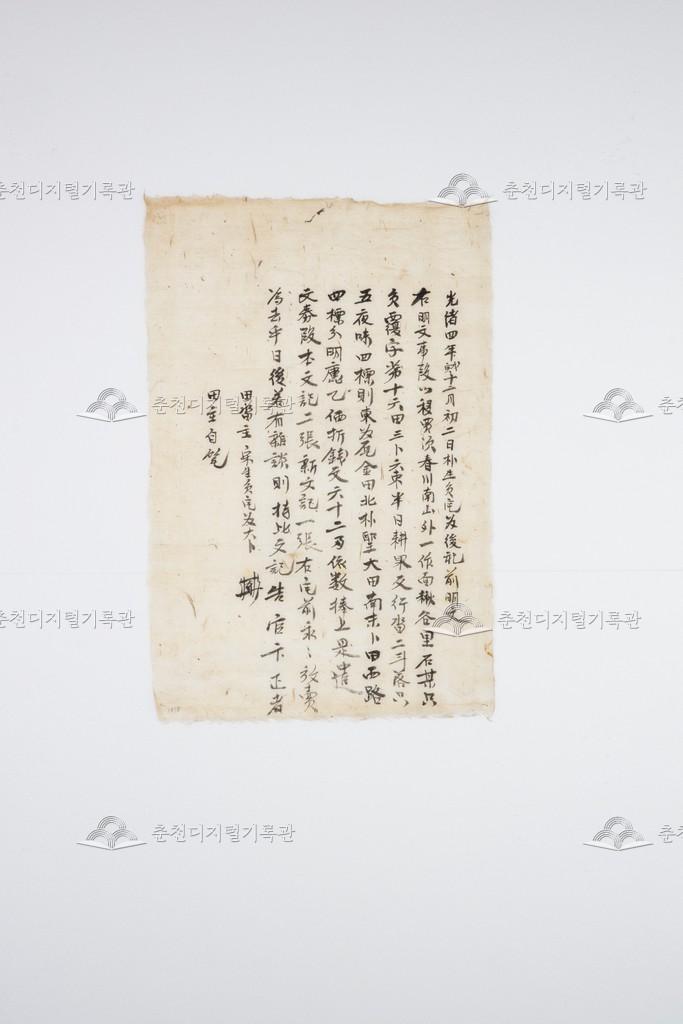 光緖四年戊寅十二月初二日朴生員宅為後記前明文
右明文事段以移買次春川南山外一作面楸谷里石某員
員覆字第十六田三卜六束半日耕果文行畓二斗落只
五夜味四標則東為尾金田北朴聖大田南末卜田西路
四標分明處乙価折錢文六十二両依数捧上是遣
文券段本文記二張新文記一張右宅前永〻放賣
為去乎日後若有雜談則持此文記告官卞正者
田畓主宋生員宅為大卜
田主自筆
춘천디지털기록관
춘천디지털기록관
춘천디지털기록관
춘천디지털기록관
춘천디지털기록관
춘천디지털기록관